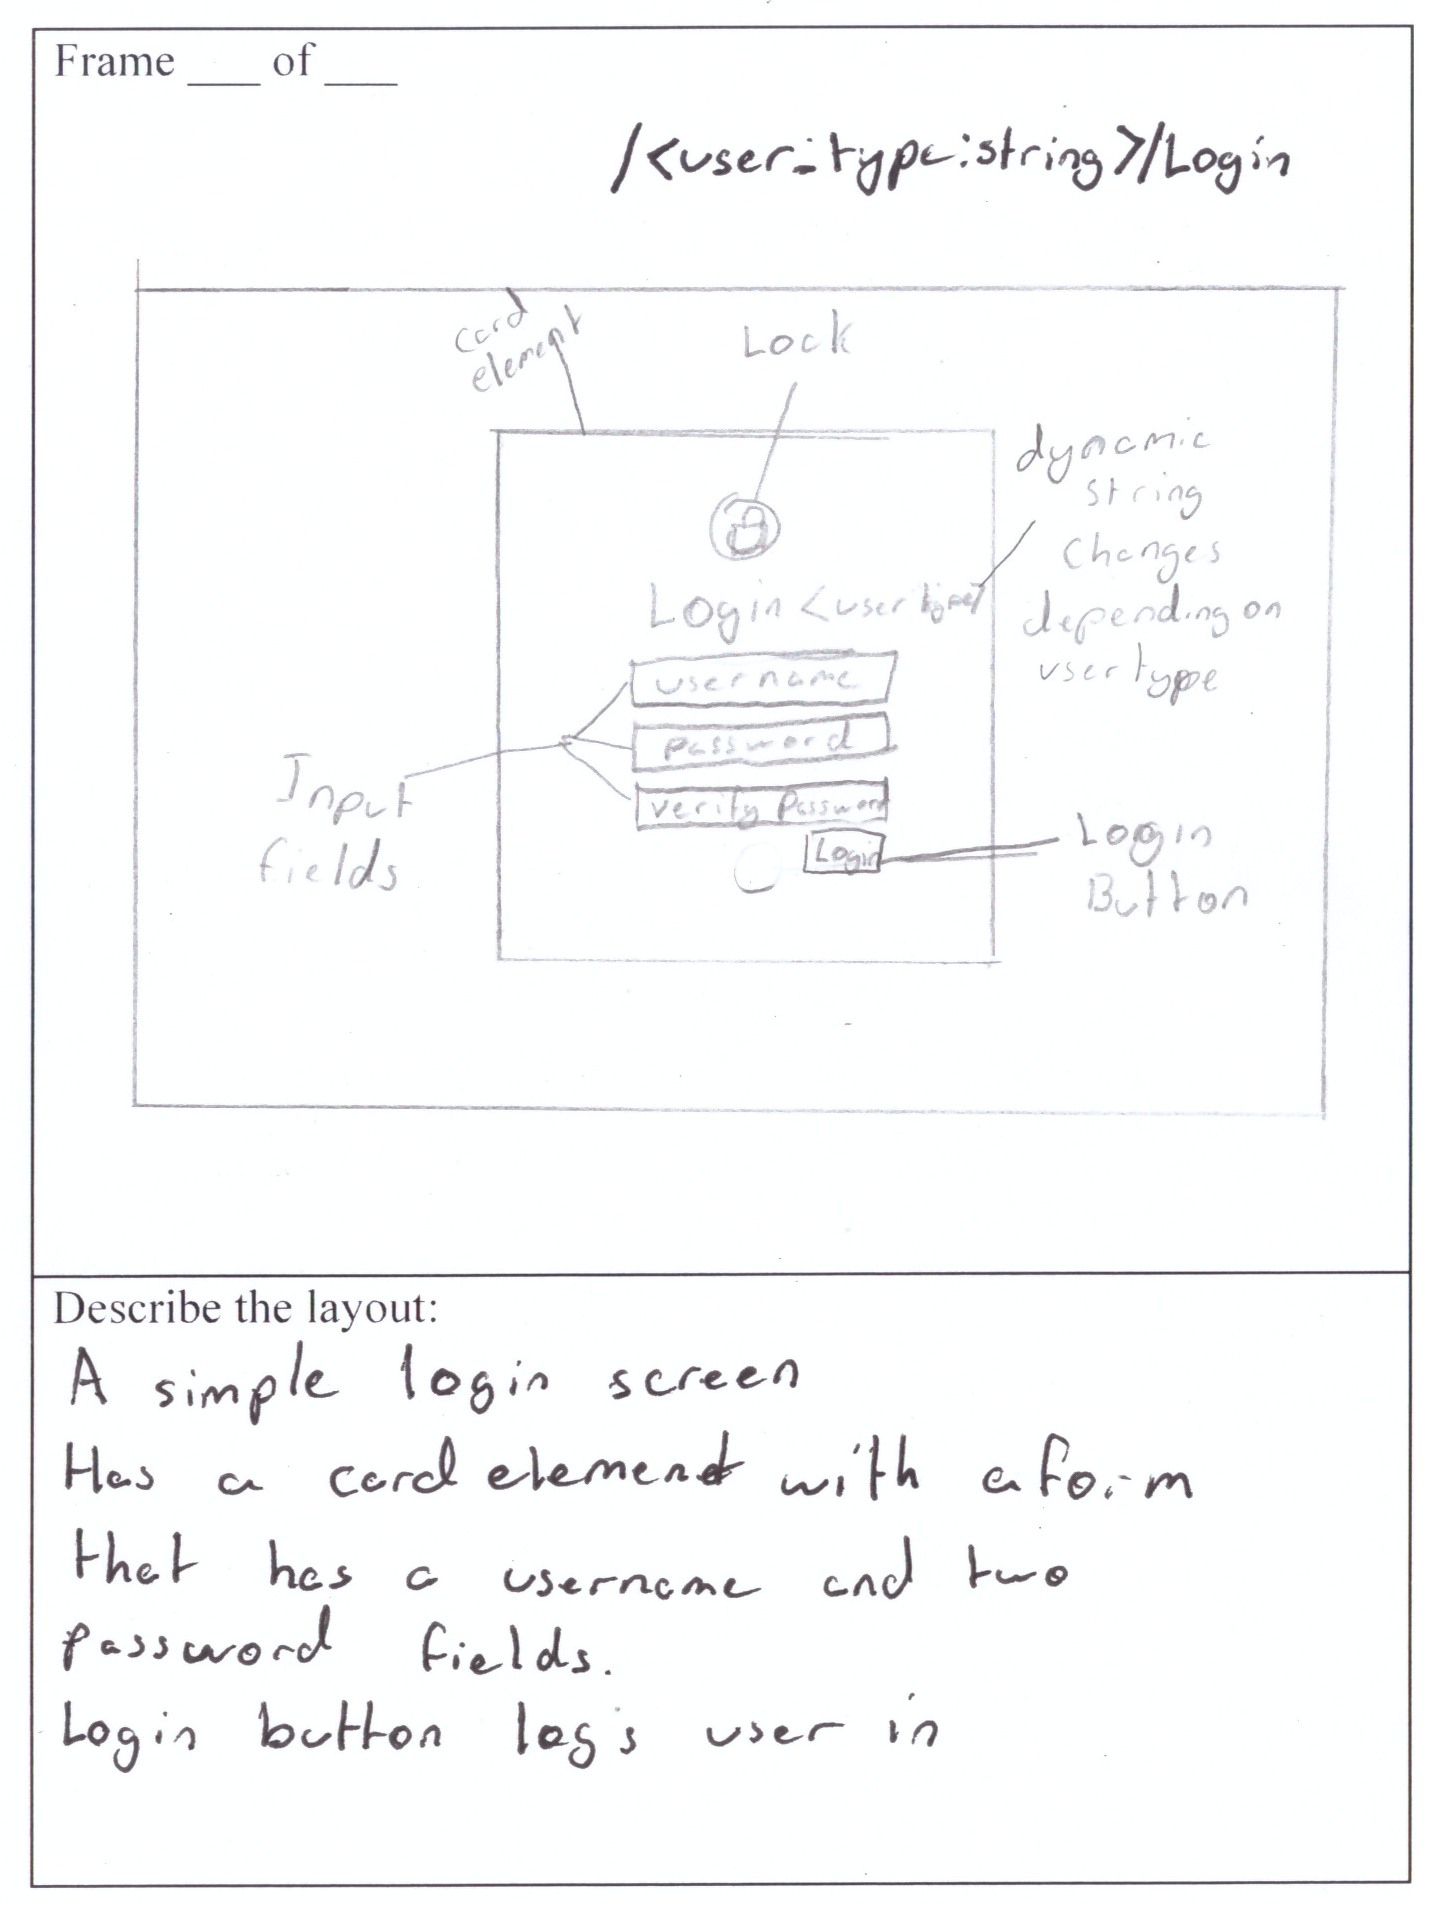 Frame ___ of ___
/<user_type:string>/Login
card
element
Lock
dynamic
string
changes
depending on
user type
Login <user type>
username
password
verify Password
Login
Input
fields
Login
Button
Describe the layout:
A simple login screen
Has a card element with a form
that has a username and two
password fields.
Login button logs user in